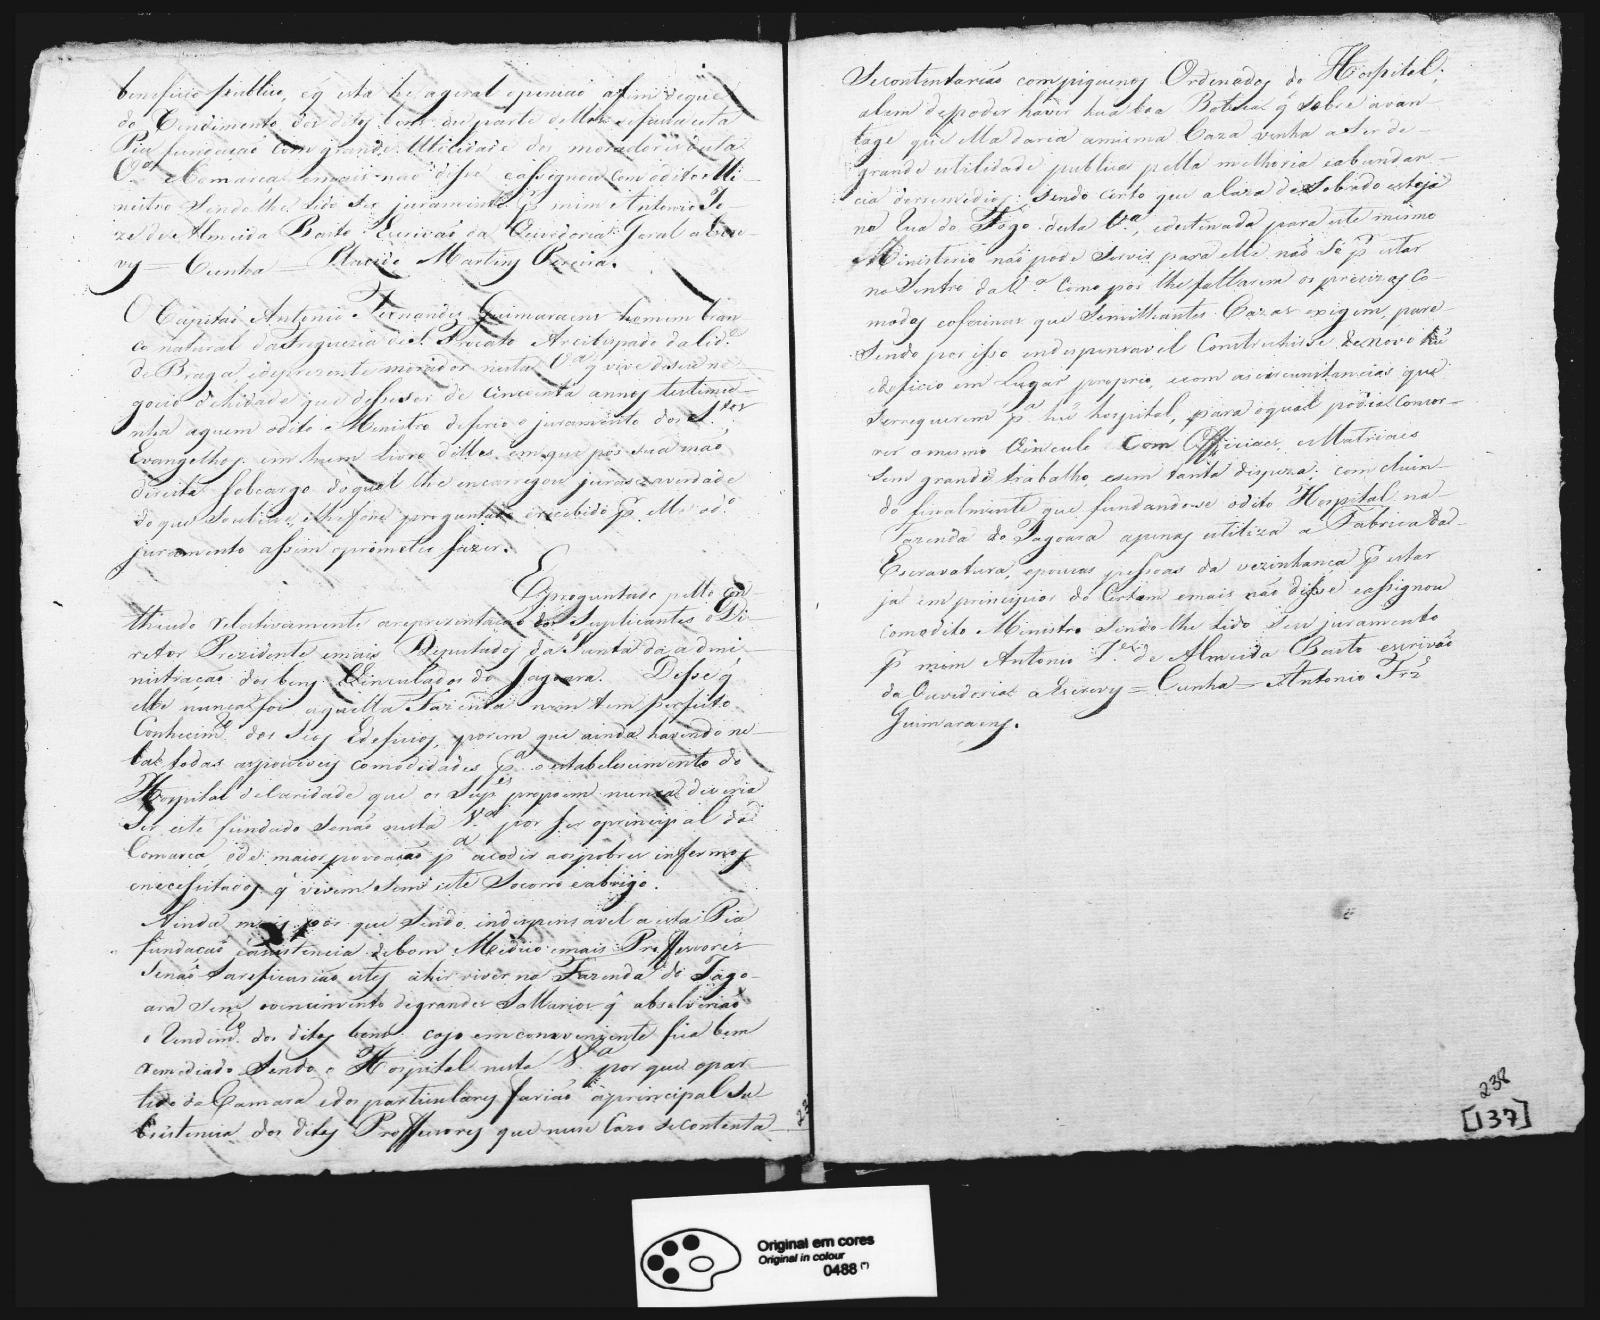 beneficio publico, e q̃ esta he ageral openiaõ afim deque
do Rendimento dos ditos bens ou parte delles sefaça esta
Pia fundaçaõ com grande Utilidade dos moradores desta
Comarca emais naõ disse eassignou com odito Mi-
nistro sendolhe lido seu juramento p̃ mim Antonio Jo-
ze de Almeida Basto Escrivaõ da Ouvedoria Geral aEscre-
vy = Cunha = Placido Martins Pereira.
O Capitaõ Antonio Fernandes Guimaraens homem bran
co natural da Freguezia de S. Arcebispado da Cid.e
de Braga, edeprezente morador nesta V.a q̃ vive deseu ne
gocio dehidade que disse ser de cincoenta annos testimu-
nha aquem odito Ministro deferio o juramento dos S.tos
Evangelhos em hum Livro delles em que pôs sua maõ
direita sobcargo doqual lhe encarregou jurase averdade
do que soubese, elhefose preguntado erecebido p̃ elle od.o
juramento assim oprometeu fazer.
Epreguntado pello con-
theudo relativamente arepresentaçaõ dos Suplicantes o Di-
retor Prezidente emais Deputados da Junta da admi-
nistraçaõ dos bens Vinculados do Jagoara. Disse q̃
elle nunca foi aquella Fazenda nem tem perfeito
Conhecim.to dos seus Edeficios, porem que ainda havendo ne-
las todas aspossiveis comodidades p.a o estabelecimento do
Hospital deCaridade que os Sup.es propoem nunca deveria
ser este fundado senaõ nesta V.a por ser aprincipal da
Comarca, ede maior povoaçaõ p.a acodir aospobres infermos
enecessitados q̃ vivem sem este Socorro eabrigo.
Ainda mais por que sendo indispensavel a esta Pia
fundaçaõ aasistencia debom Medico emais Proffesores
senaõ sareficaraõ estes ahir viver na Fazenda do Jago-
ara sem ovencimento degrandes Sallarios q̃ absolveriaõ
o Rendim.to dos ditos bens cujo emconveniente fica bem
remediado sendo o Hospital nesta V.a por que opar-
tido da Camara edos particulares fariaõ aprincipal su-
bsistencia dos ditos Proffesores que nese Cazo secontenta
Secontentariaõ compiquenos Ordenados do Hospital;
alem depoder haver hua boa Botica q̃ sobre avan-
tage que ella daria amesma Caza venha a ser de-
grande utilidade publica pella melhoria eabundan-
cia dosremedios; sendo certo que aCaza deSobrado esteja
na Rua do Fogo desta V.a, edestinada para este mesmo
Ministerio naõ pode servir para elle naõ só p̃ estar
no Sentro da V.a como por lhe faltarem os precizos Co-
modos eoficinas que Semilhantes Cazas exigem, pare-
sendo por isso endispensavel Construhirse de novo hũ
edeficio em Lugar proprio, ecom ascircunstancias que
serrequerem p.a hũ hospital, para oqual podia Concor-
rer o mesmo Vinculo Com Officiaes, eMatriaes
sem grande trabalho esem tanta dispeza; com cluin-
do finalmente que fundandose odito Hospital na-
Fazenda do Jagoara apenas utiliza a Fabrica da-
Escravatura, epoucas pessoas da vezinhança p̃ estar
ja em principios do Certam emais naõ disse eassignou
comodito Ministro sendo-lhe lido seu juramento
p̃ mim Antonio J.e de Almeida Basto escrivaõ
da Ouvedoria aEscrevy = Cunha = Antonio Frz
Guimaraens.
238
[137]
Original em cores
Original in colour
0488 (*)